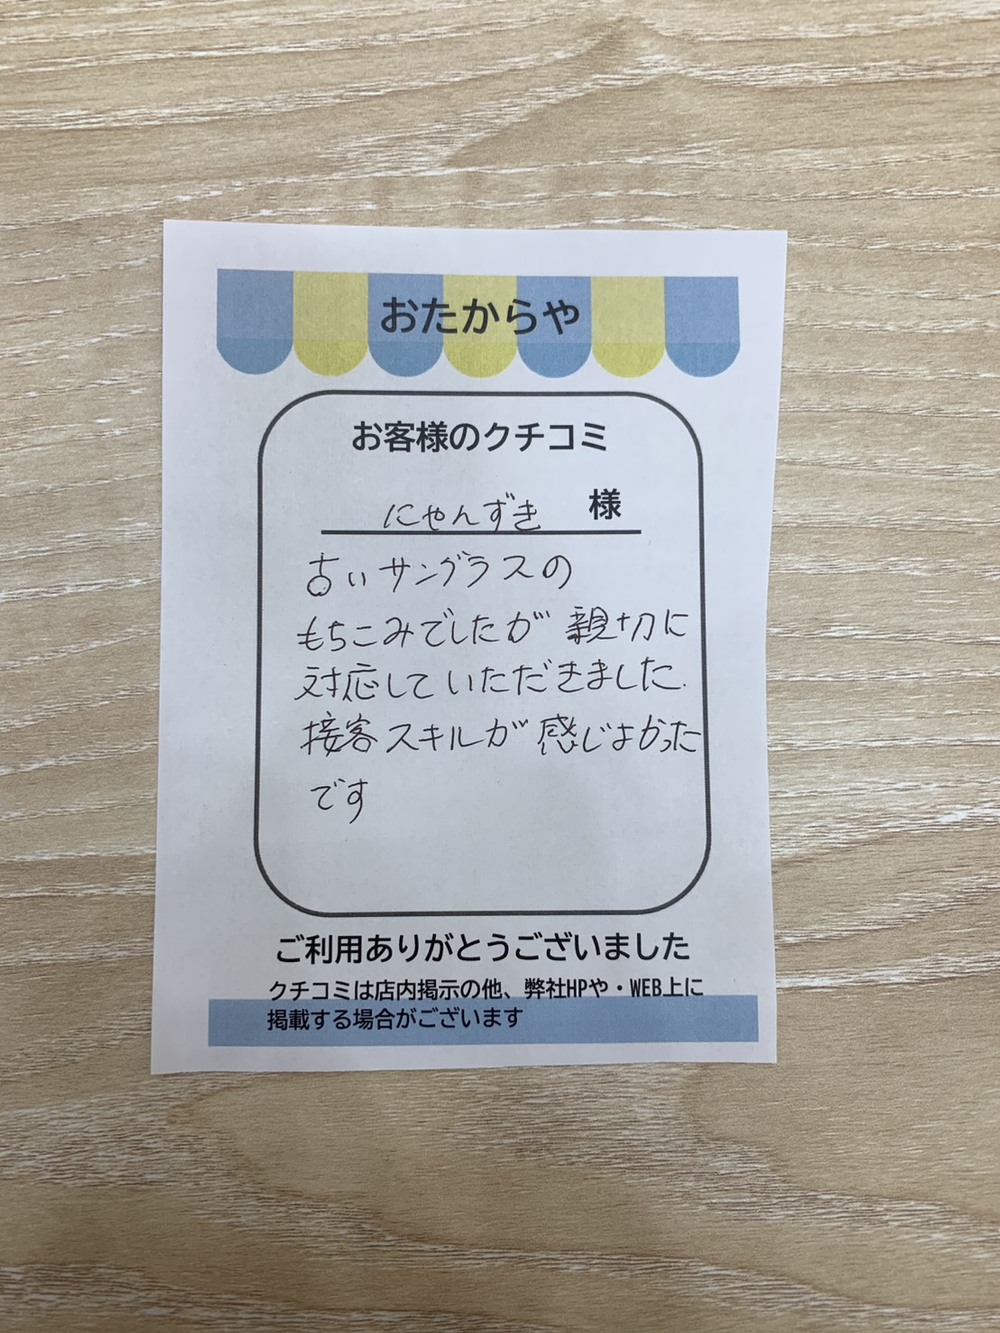 おたからや
お客様のクチコミ
にゃんずき 様
古いサングラスの
もちこみでしたが 親切に
対応していただきました.
接客スキルが 感じよかった
です
ご利用ありがとうございました
クチコミは店内掲示の他、弊社HPや・WEB上に
掲載する場合がございます